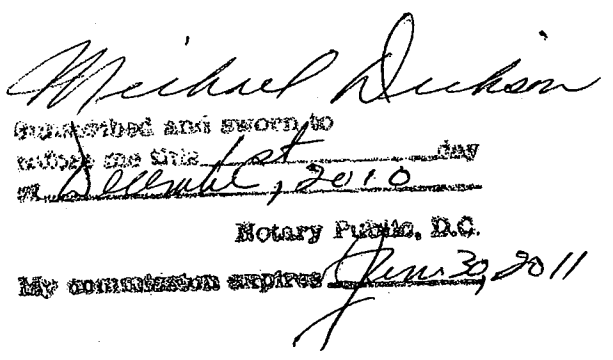 Michael Dickson
Subscribed and sworn to
before me this 1st day
of December, 2010
Notary Public, D.C.
My commission expires June 30, 2011